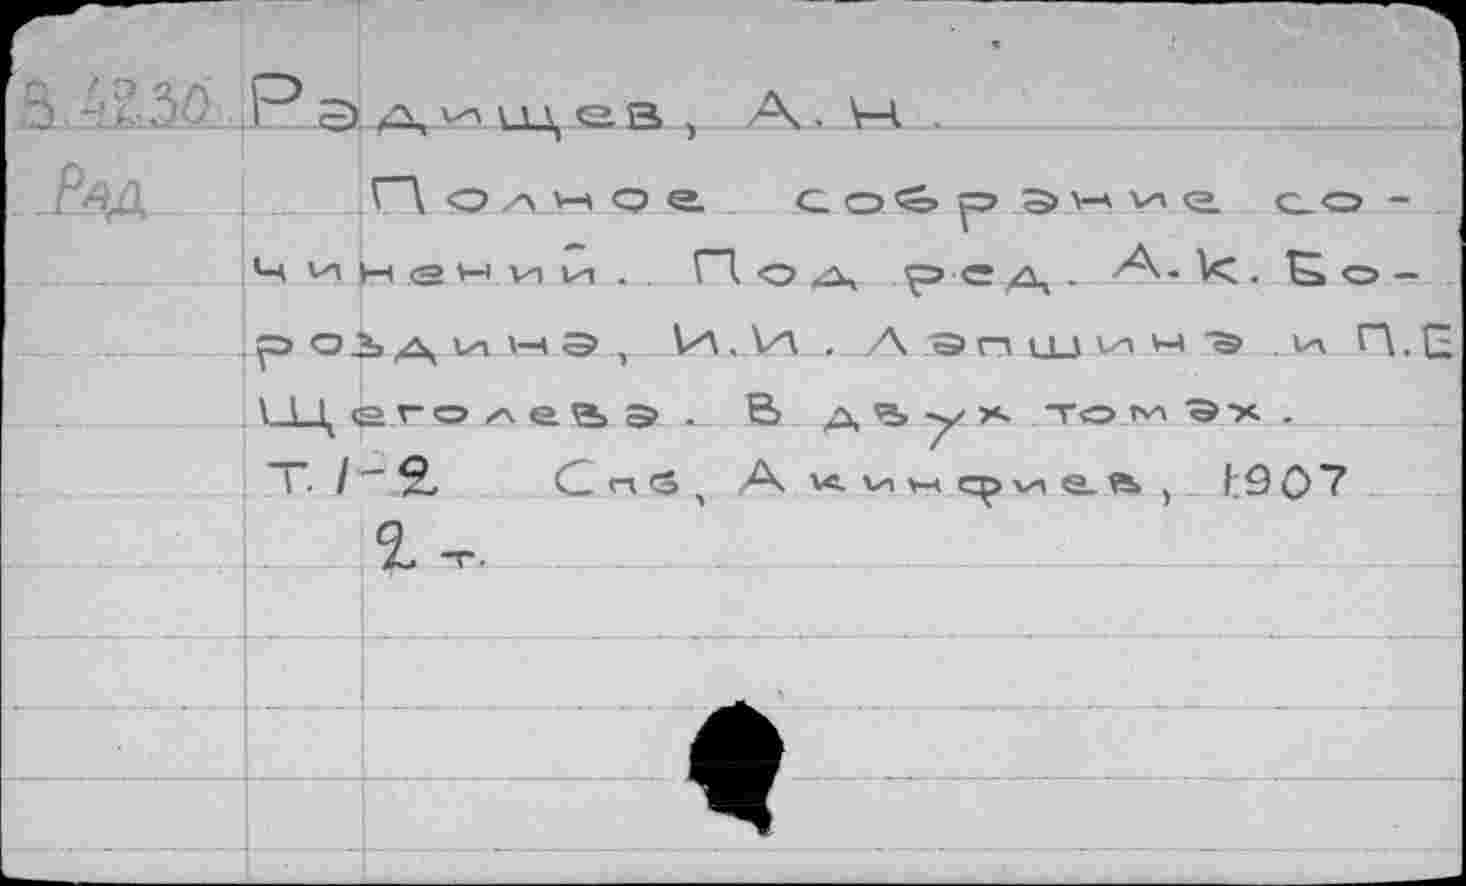 В.4230 Радищев, А.Н.
Рад Полное собрание со-
чинений. Под ред. А.К. Бо-
роздина, И.И. Лапшина и П.Е
Щеголева. В двух томах.
Т. 1-2 Спб, Акинфиев, 1907
2 т.